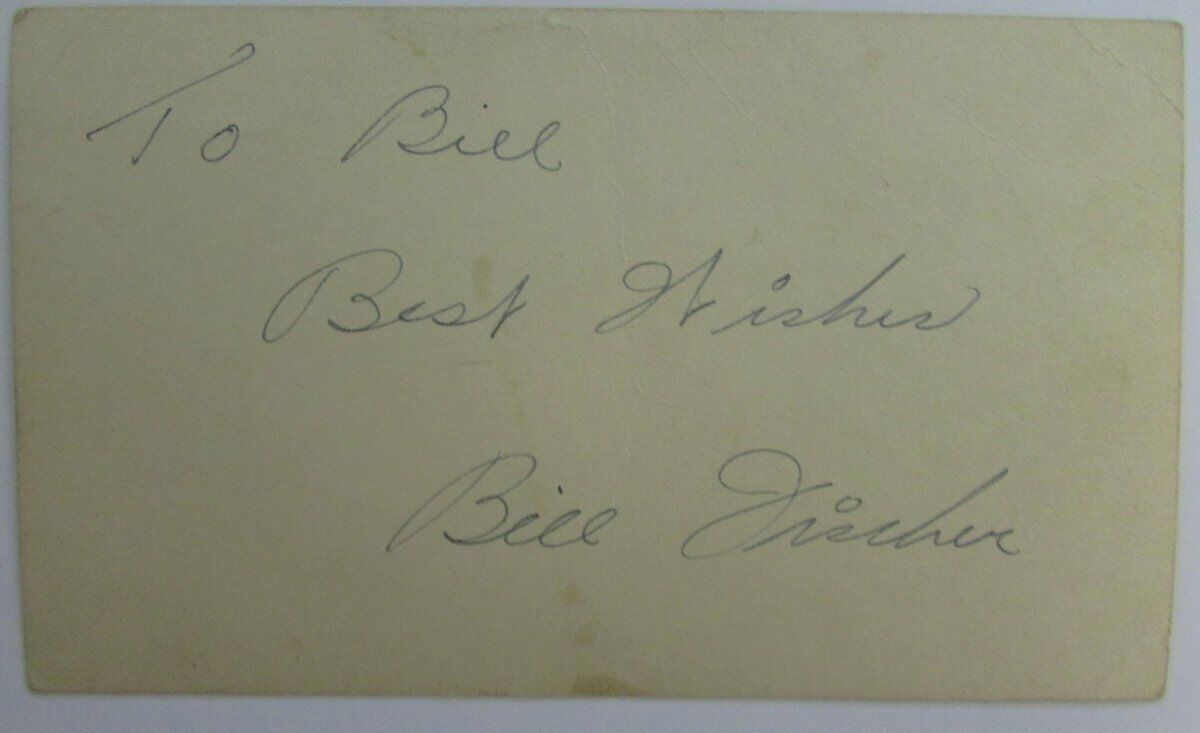 To Bill
Best Wishes
Bill Fischer